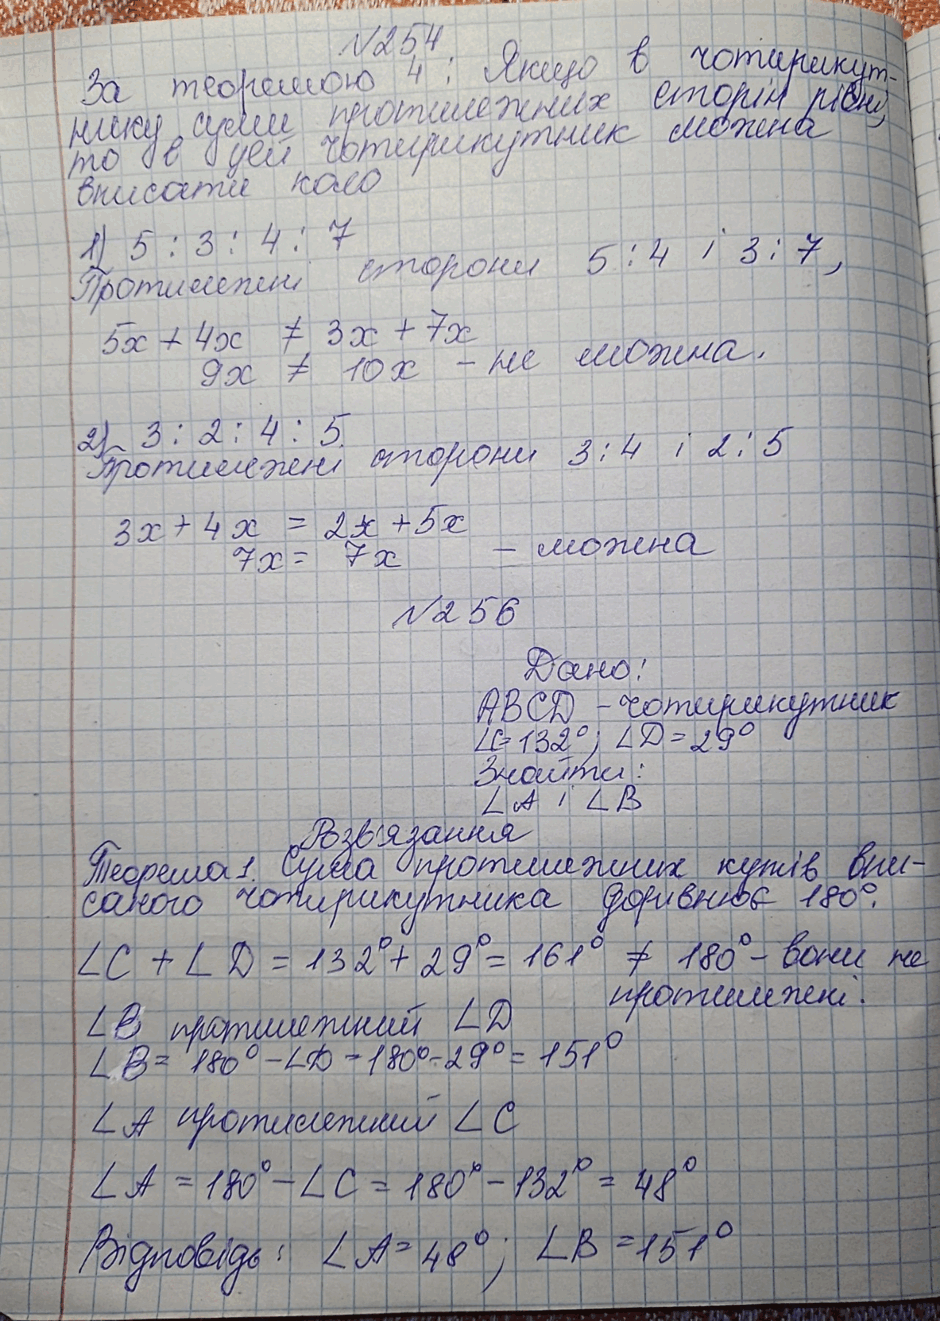 №254
За теоремою 4: Якщо в чотирикут-
нику суми протилежних сторін рівні,
то в цей чотирикутник можна
вписати коло
1) 5 : 3 : 4 : 7
Протилежні сторони 5 : 4 і 3 : 7,
5x + 4x ≠ 3x + 7x
9x ≠ 10x - не можна.
2) 3 : 2 : 4 : 5
Протилежні сторони 3 : 4 і 2 : 5
3x + 4x = 2x + 5x
7x = 7x - можна
№256
Дано:
ABCD - чотирикутник
∠C=132°; ∠D=29°
Знайти:
∠A і ∠B
Розв'язання
Теорема 1. Сума протилежних кутів впи-
саного чотирикутника дорівнює 180°.
∠C + ∠D = 132° + 29° = 161° ≠ 180° - вони не
протилежні.
∠B протилежний ∠D
∠B = 180° - ∠D = 180° - 29° = 151°
∠A протилежний ∠C
∠A = 180° - ∠C = 180° - 132° = 48°
Відповідь: ∠A = 48°; ∠B = 151°